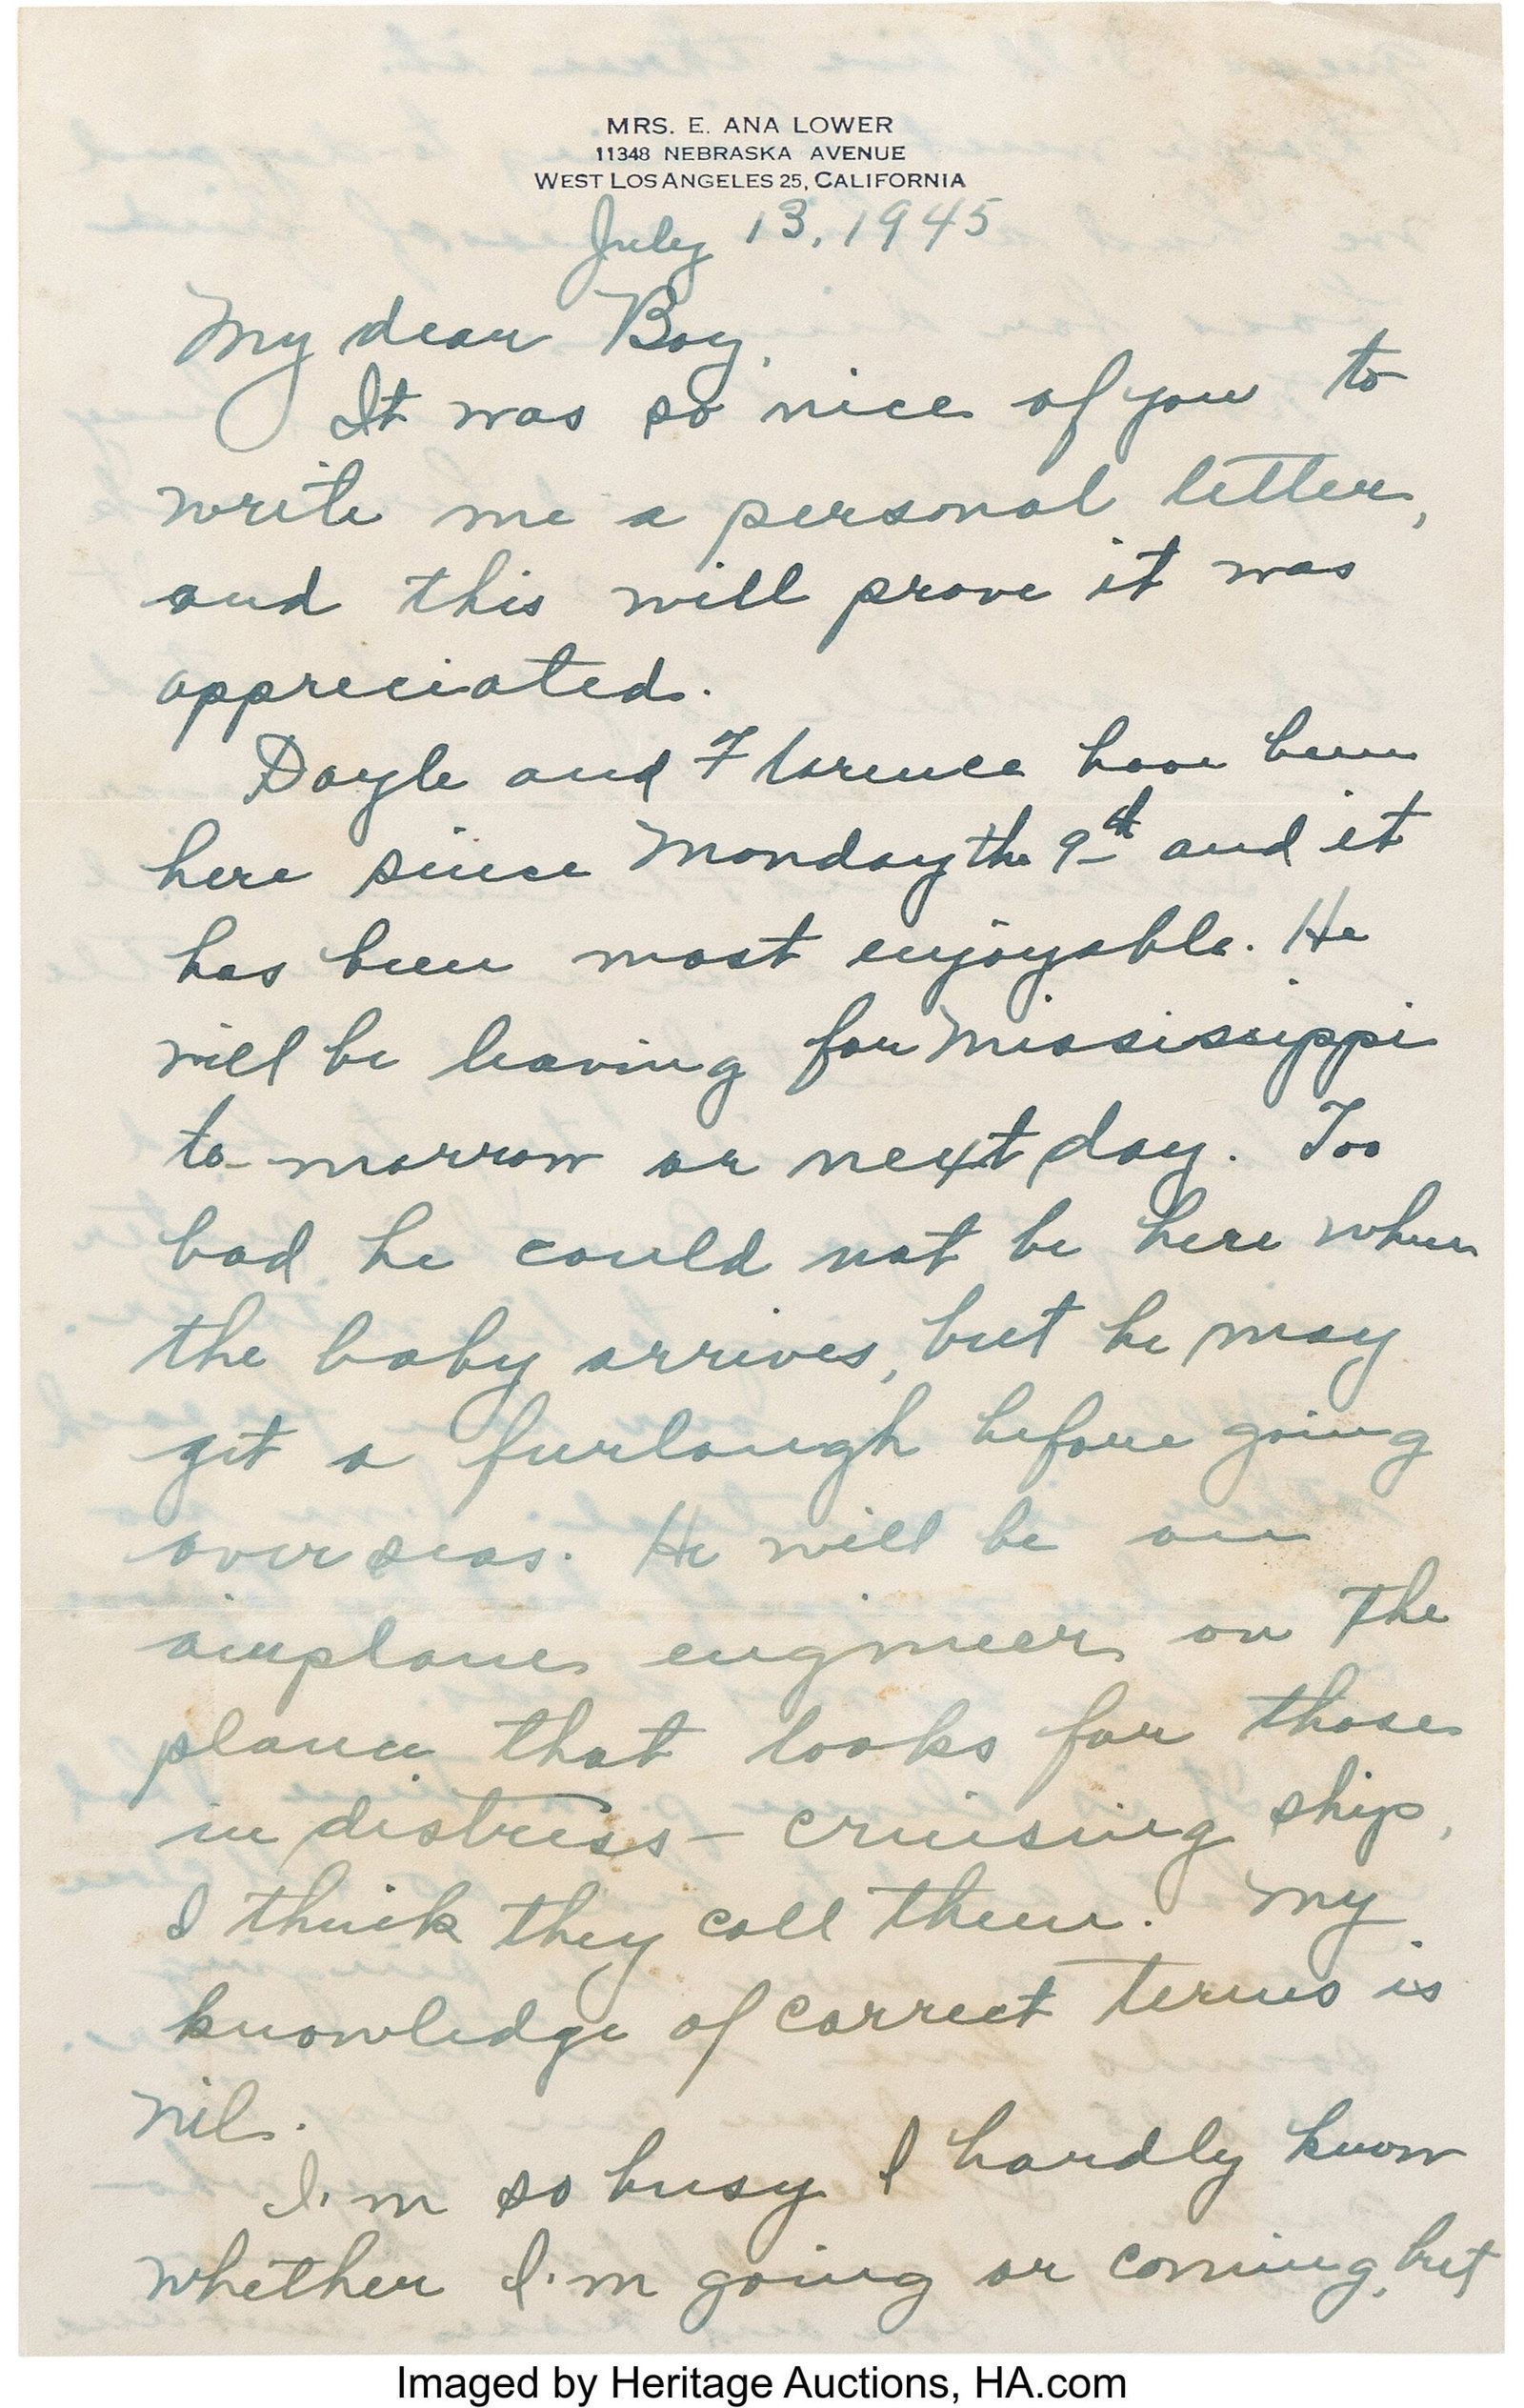 MRS. E. ANA LOWER
11348 NEBRASKA AVENUE
WEST LOS ANGELES 25, CALIFORNIA
July 13, 1945
My dear Boy,
It was so nice of you to
write me a personal letter,
and this will prove it was
appreciated.
Doyle and Florence have been
here since Monday the 9th and it
has been most enjoyable. He
will be leaving for Mississippi
to-morrow or next day. Too
bad he could not be here when
the baby arrives, but he may
get a furlough before going
overseas. He will be an
airplane engineer on the
plane that looks for those
in distress - cruising ship,
I think they call them. My
knowledge of correct terms is
nil.
I'm so busy I hardly know
whether I'm going or coming, but
Imaged by Heritage Auctions, HA.com